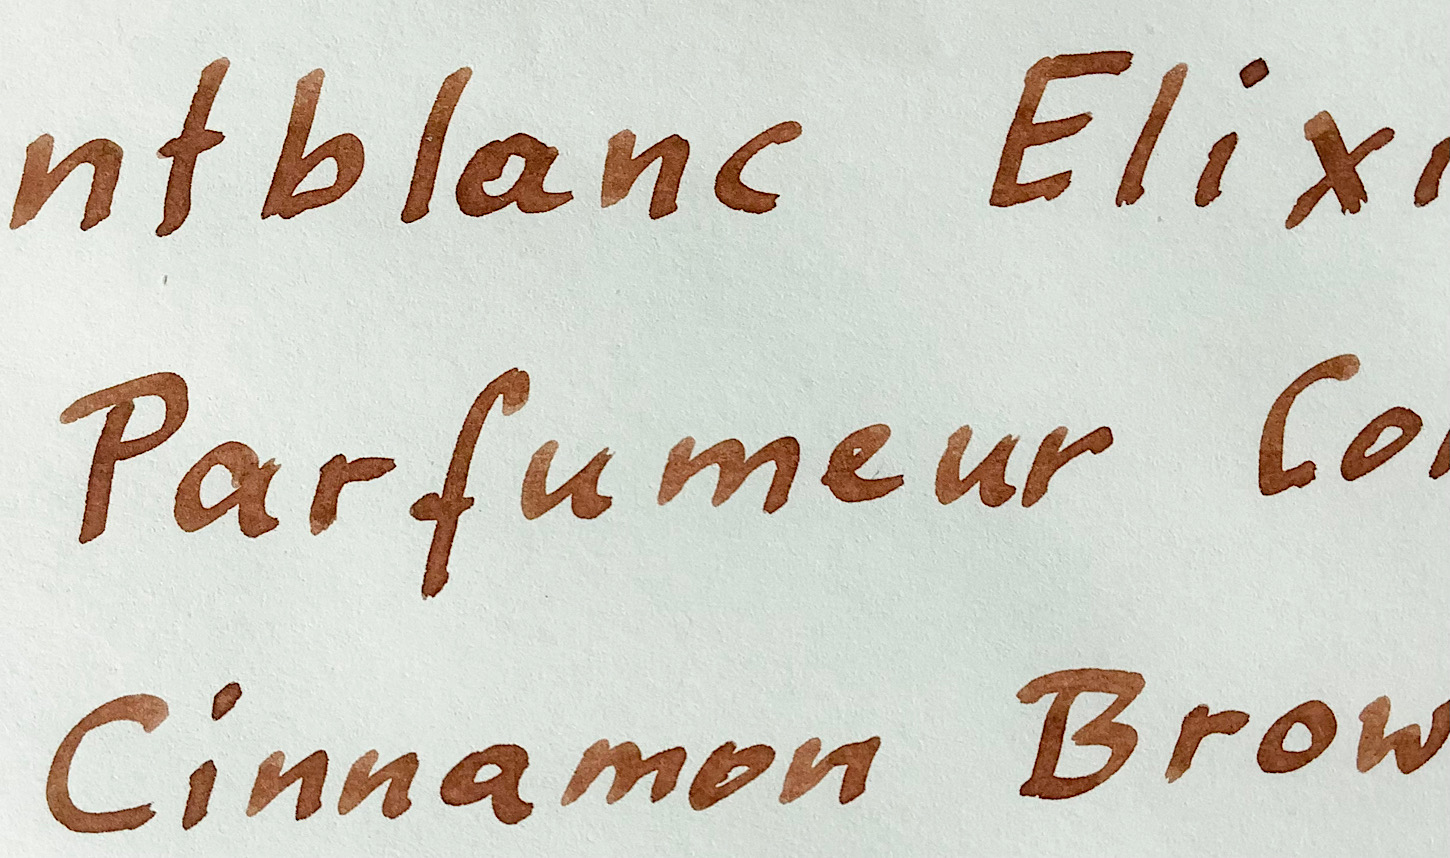 ntblanc Elixi
Parfumeur Col
Cinnamon Brow